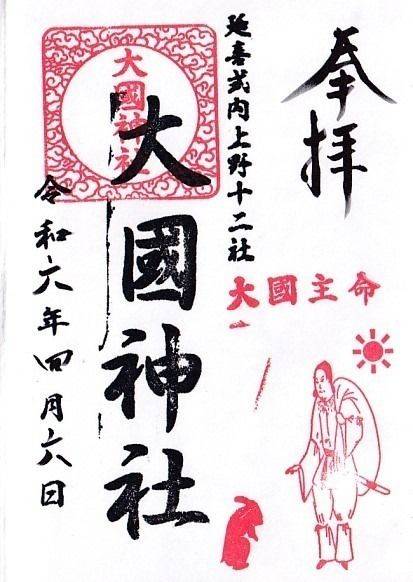 奉拝
延喜式内上野十二社
大國主命
大國神社
大國神社
令和六年四月六日